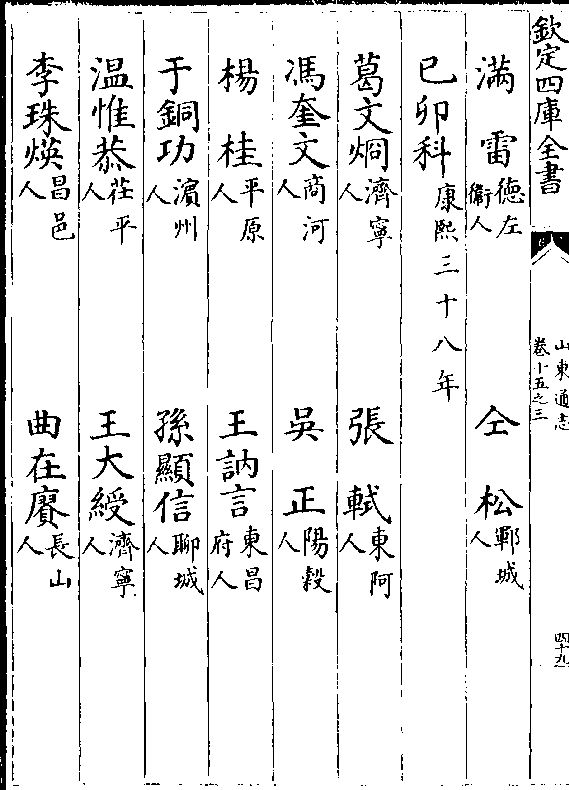 欽定四庫全書
山東通志
卷十五之三
四十九
滿雷德左衞人
仝松鄆城人
己卯科康熙三十八年
葛文烱濟寧人
張軾東阿人
馮奎文商河人
吳正陽穀人
楊桂平原人
王訥言東昌府人
于銅功濵州人
孫顯信聊城人
温惟恭茌平人
王大綬濟寧人
李珠煐昌邑人
曲在賡長山人